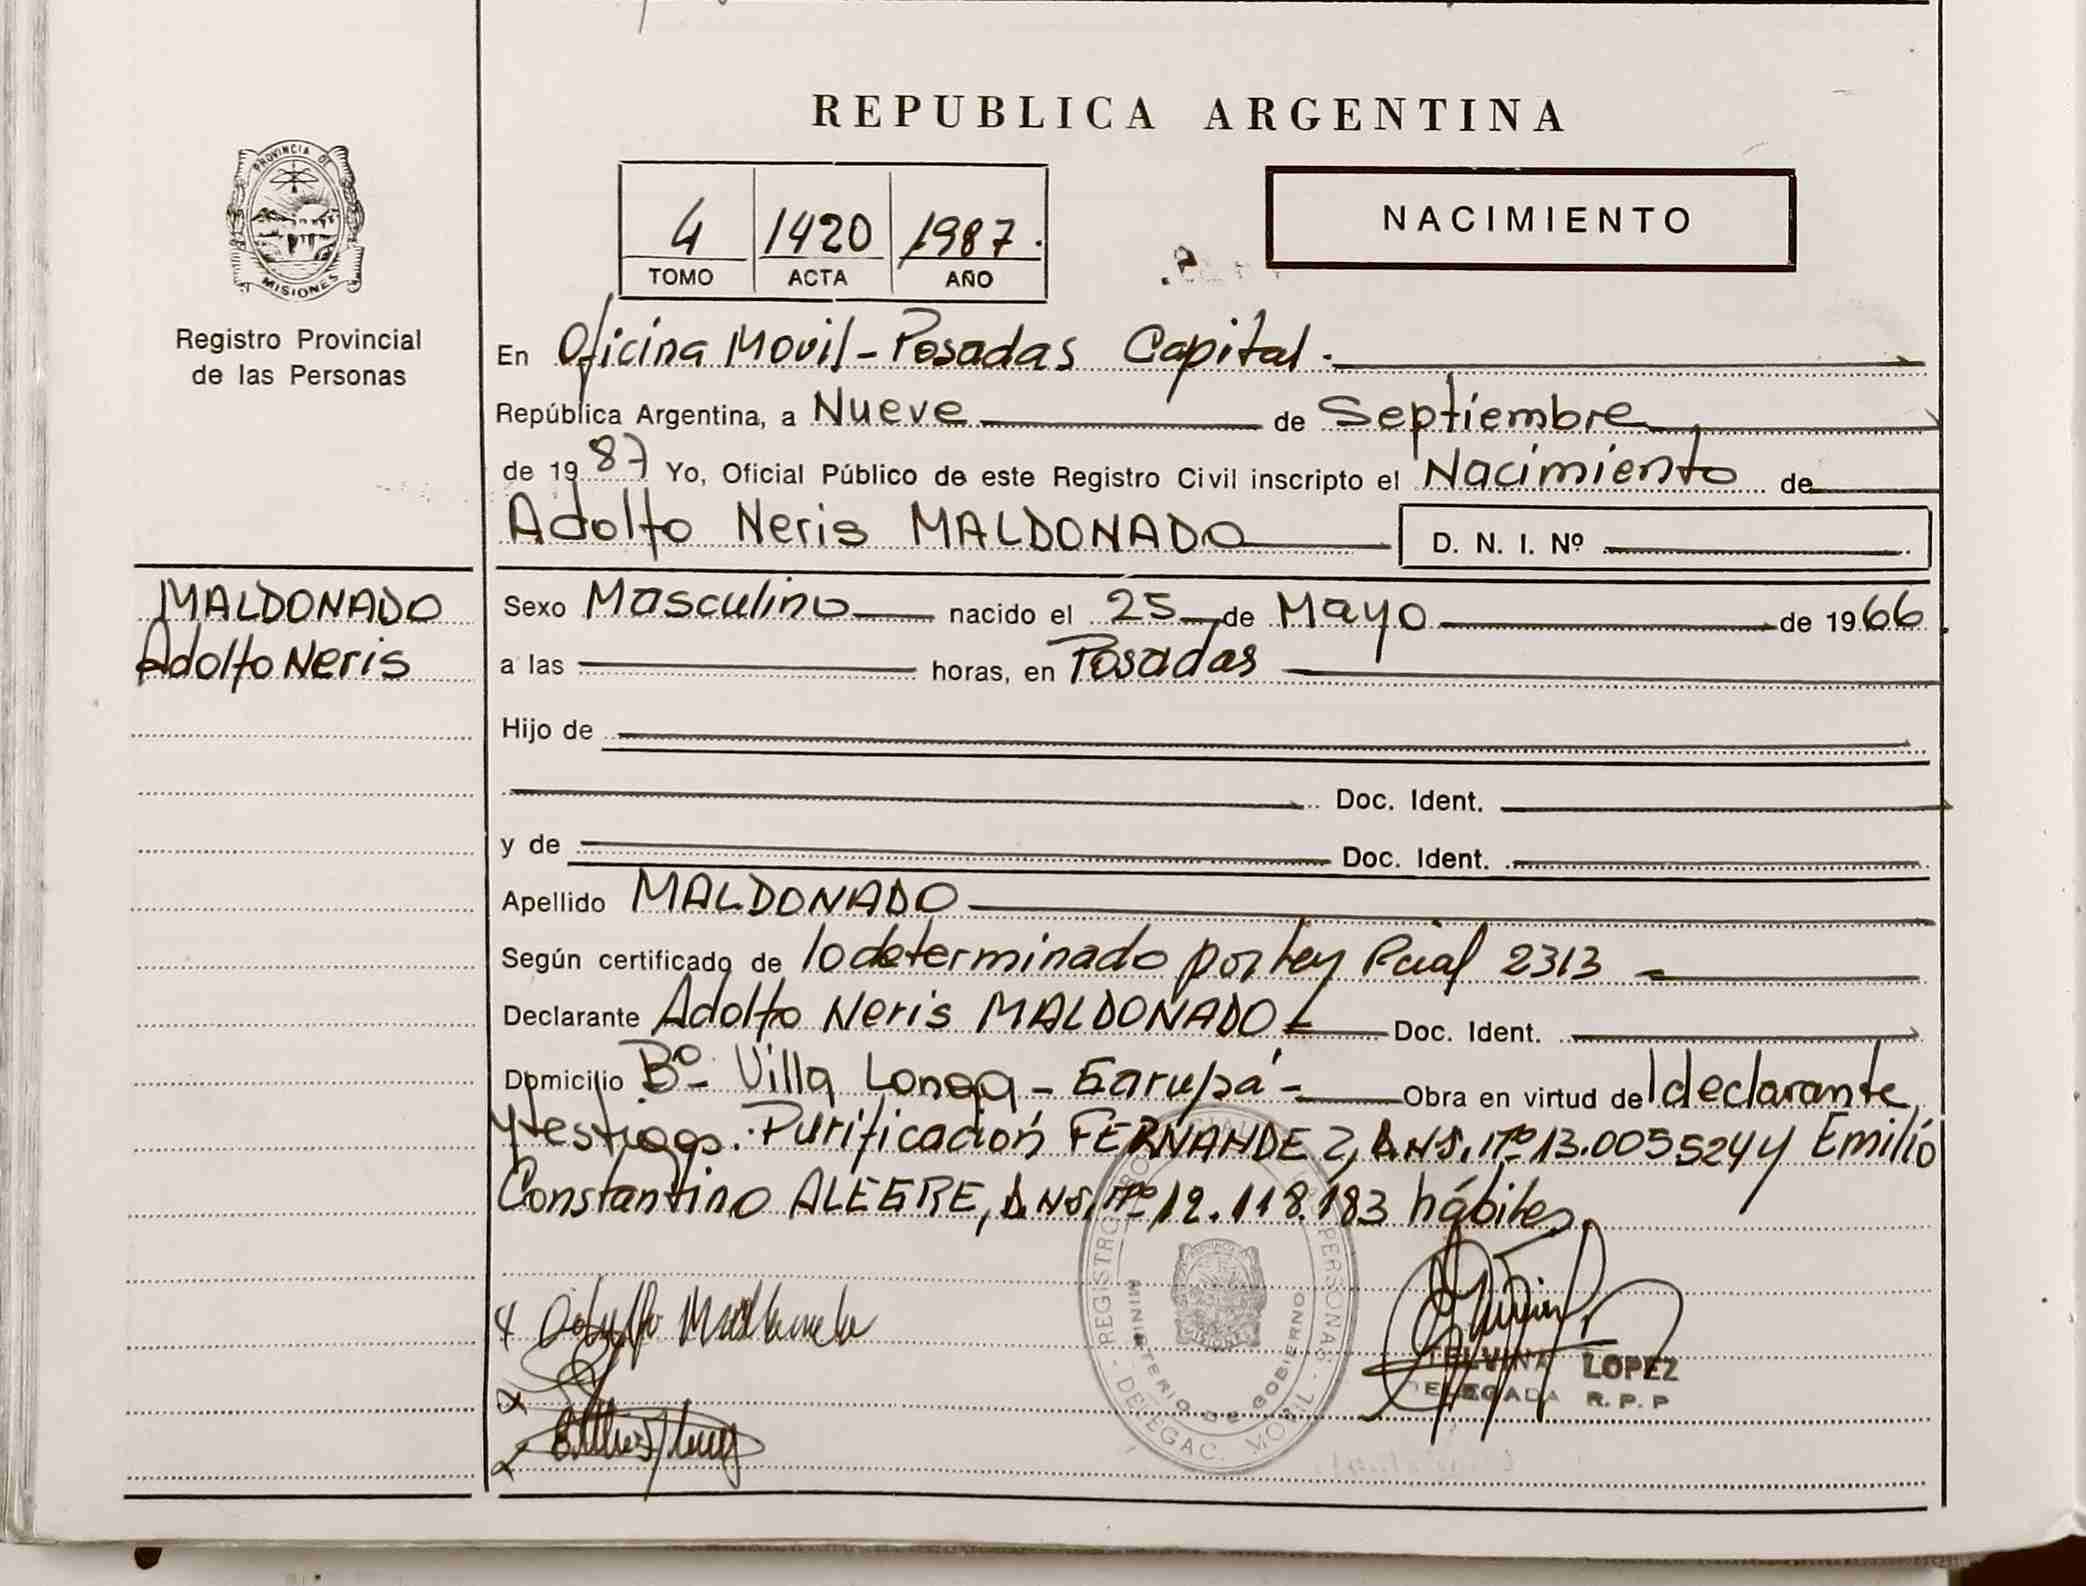 REPUBLICA ARGENTINA
PROVINCIA DE
MISIONES
Registro Provincial
de las Personas
4 1420 1987.
TOMO ACTA AÑO
NACIMIENTO
En Oficina Movil - Posadas Capital.
República Argentina, a Nueve de Septiembre
de 1987 Yo, Oficial Público de este Registro Civil inscripto el Nacimiento de
Adolfo Neris MALDONADO D. N. I. Nº
MALDONADO
Adolfo Neris
Sexo Masculino nacido el 25 de Mayo de 1966
a las horas, en Posadas
Hijo de
Doc. Ident.
y de Doc. Ident.
Apellido MALDONADO
Según certificado de lo determinado por ley Pcial 2313
Declarante Adolfo Neris MALDONADO Doc. Ident.
Domicilio Bº- Villa Longa - Garupá - Obra en virtud del declarante
y testigos. Purificación FERNANDEZ, D.N.I. Nº 13.005524 y Emilio
Constantino ALEGRE, D.N.I. Nº 12.118.183 hábiles.
REGISTRO PERSONAS
MINISTERIO DE GOBIERNO
DELEGAC. MOVIL
TELVINA LOPEZ
DELEGADA R. P. P